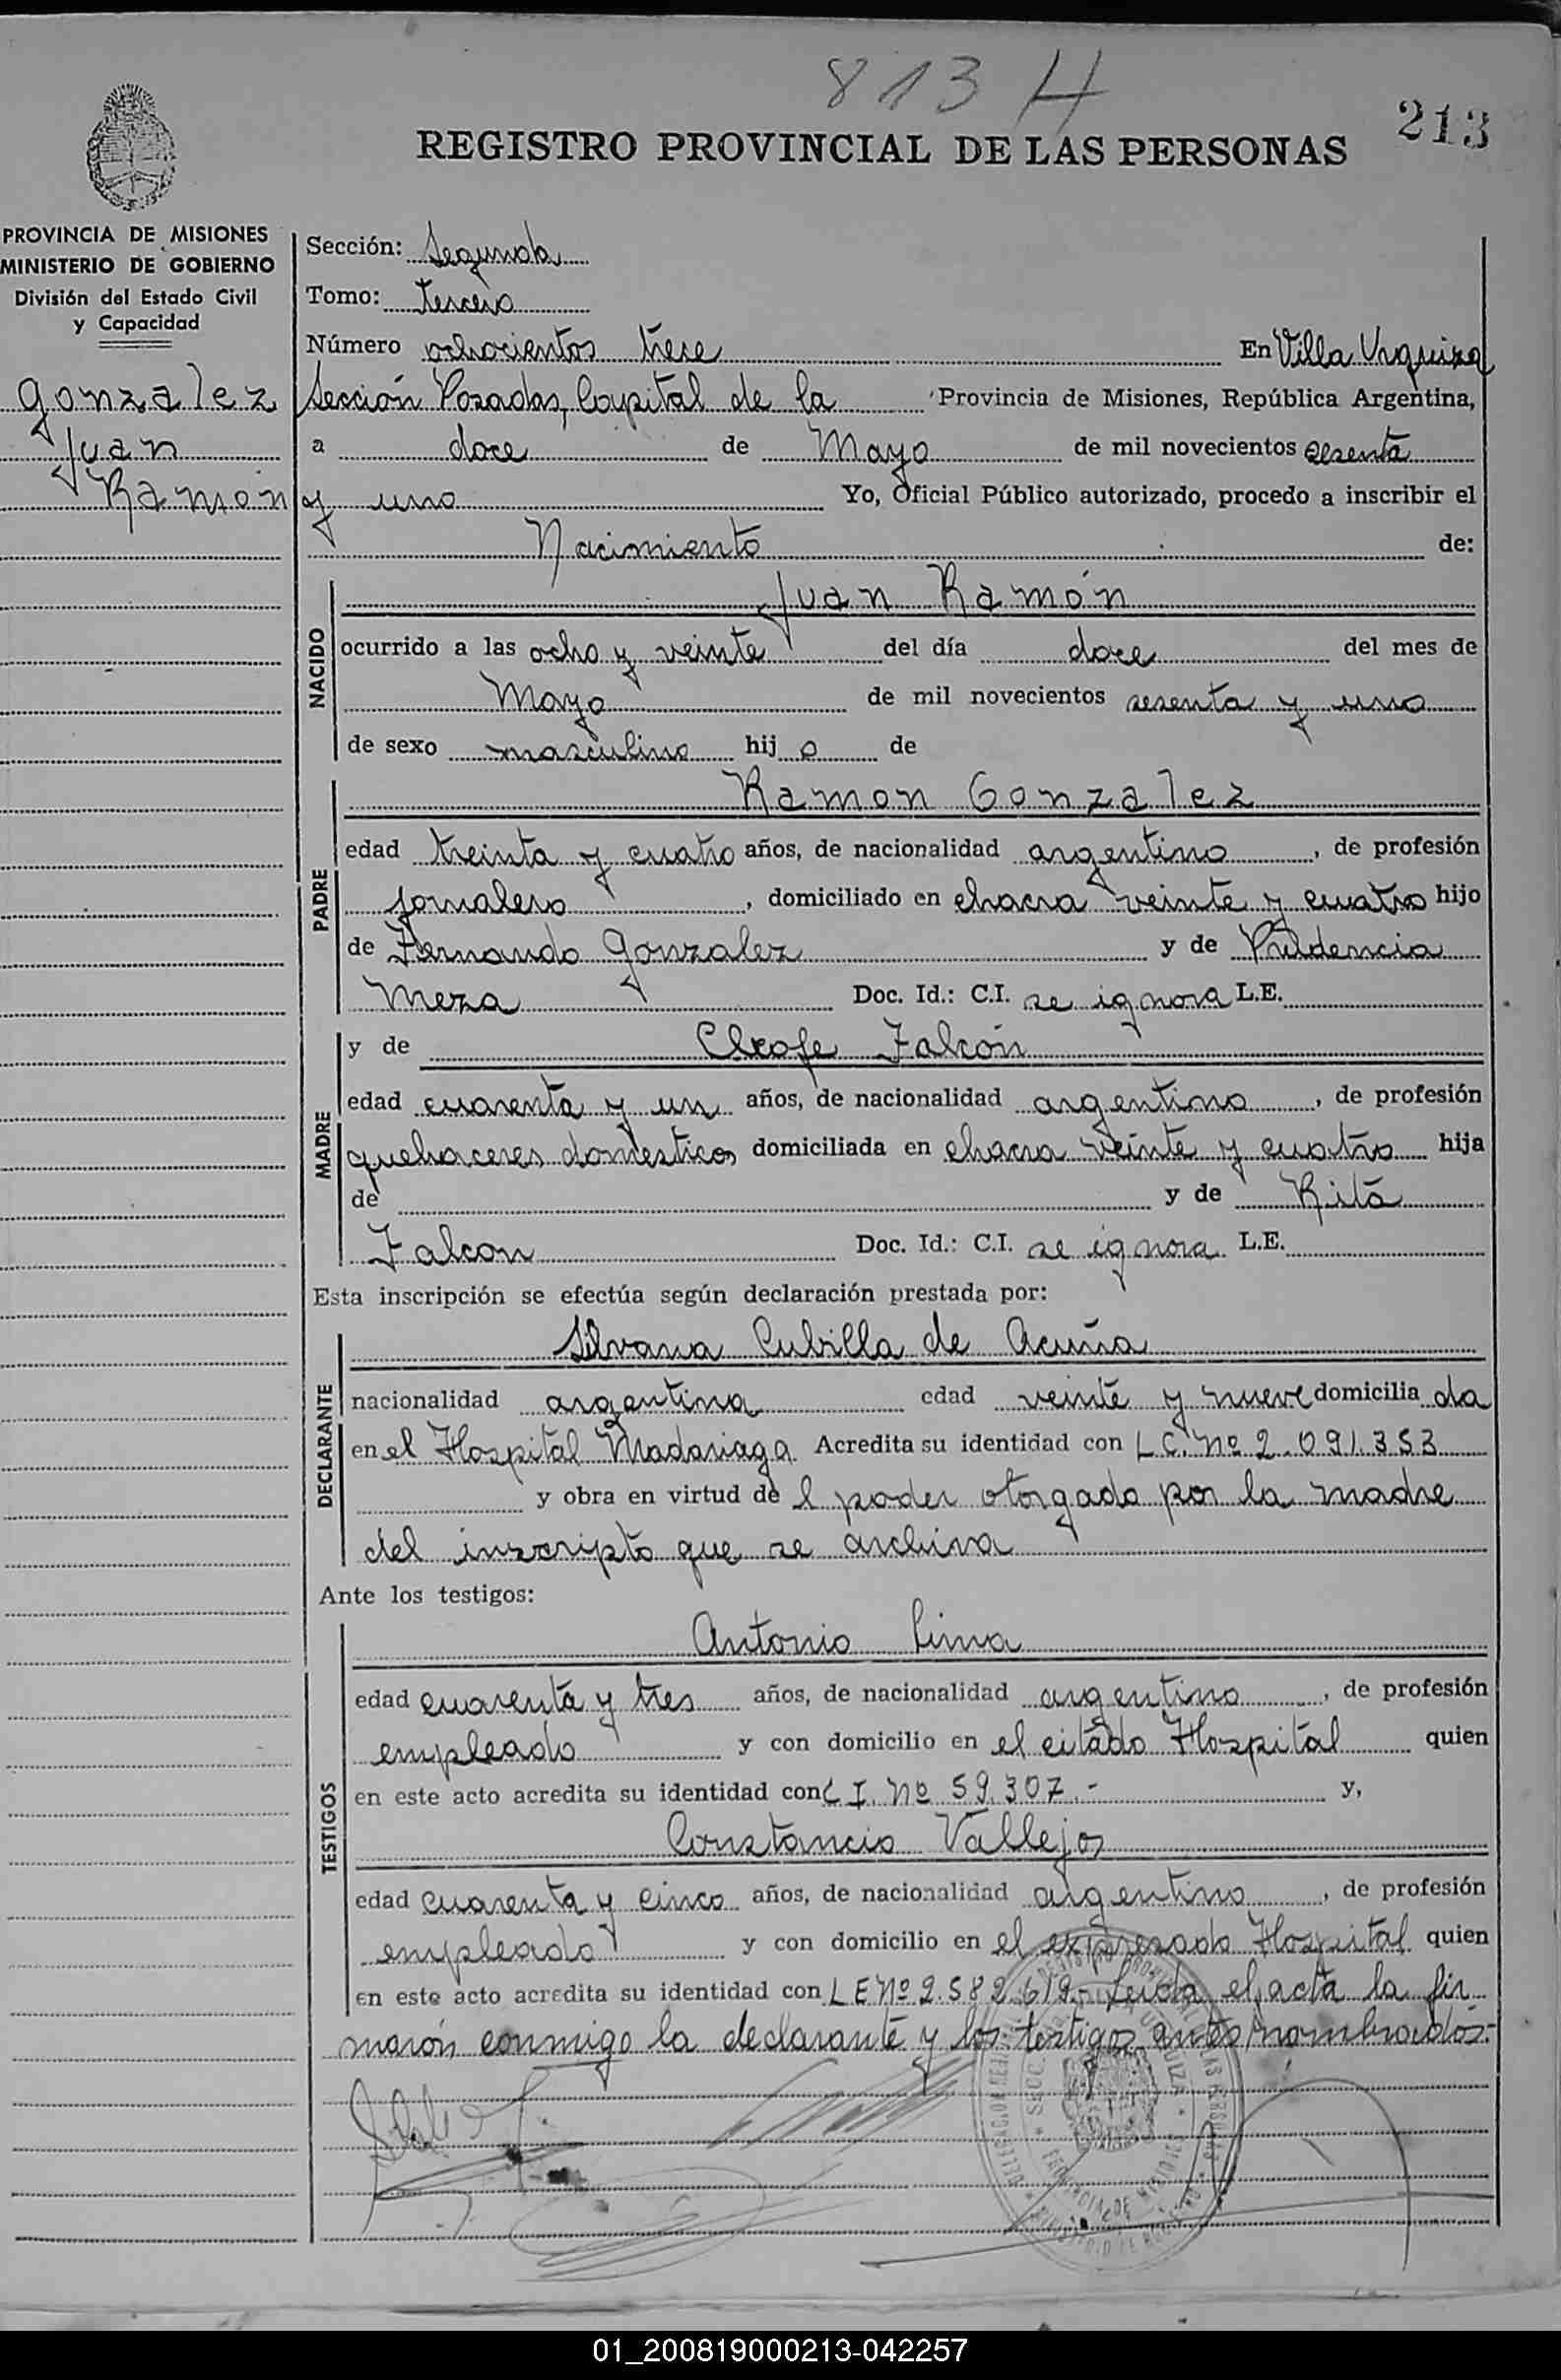 813 H
213
REGISTRO PROVINCIAL DE LAS PERSONAS
PROVINCIA DE MISIONES
MINISTERIO DE GOBIERNO
División del Estado Civil
y Capacidad
Gonzalez
Juan
Ramón
Sección: Segunda
Tomo: tercero
Número ochocientos trece En Villa Urquiza
Sección Posadas, Capital de la Provincia de Misiones, República Argentina,
a doce de Mayo de mil novecientos sesenta
y uno Yo, Oficial Público autorizado, procedo a inscribir el
Nacimiento de:
NACIDO
Juan Ramón
ocurrido a las ocho y veinte del día doce del mes de
Mayo de mil novecientos sesenta y uno
de sexo masculino hij o de
PADRE
Ramon Gonzalez
edad treinta y cuatro años, de nacionalidad argentino, de profesión
jornalero, domiciliado en chacra veinte y cuatro hijo
de Fernando Gonzalez y de Prudencia
Meza Doc. Id.: C.I. se ignora L.E.
MADRE
y de Cleofe Falcón
edad cuarenta y un años, de nacionalidad argentina, de profesión
quehaceres domesticos domiciliada en chacra veinte y cuatro hija
de y de Rita
Falcon Doc. Id.: C.I. se ignora L.E.
Esta inscripción se efectúa según declaración prestada por:
DECLARANTE
Silvana Cubilla de Acuña
nacionalidad argentina edad veinte y nueve domicilia da
en el Hospital Madariaga Acredita su identidad con L.C. Nº 2.091.353
y obra en virtud de l poder otorgado por la madre
del inscripto que se archiva
Ante los testigos:
TESTIGOS
Antonio Lima
edad cuarenta y tres años, de nacionalidad argentino, de profesión
empleado y con domicilio en el citado Hospital quien
en este acto acredita su identidad con C I. Nº 59.307.- y,
Constancio Vallejos
edad cuarenta y cinco años, de nacionalidad argentino, de profesión
empleado y con domicilio en el expresado Hospital quien
en este acto acredita su identidad con L E Nº 2.582.619.- Leida el acta la fir
marón conmigo la declarante y los testigos antes nombrados.-
01_200819000213-042257